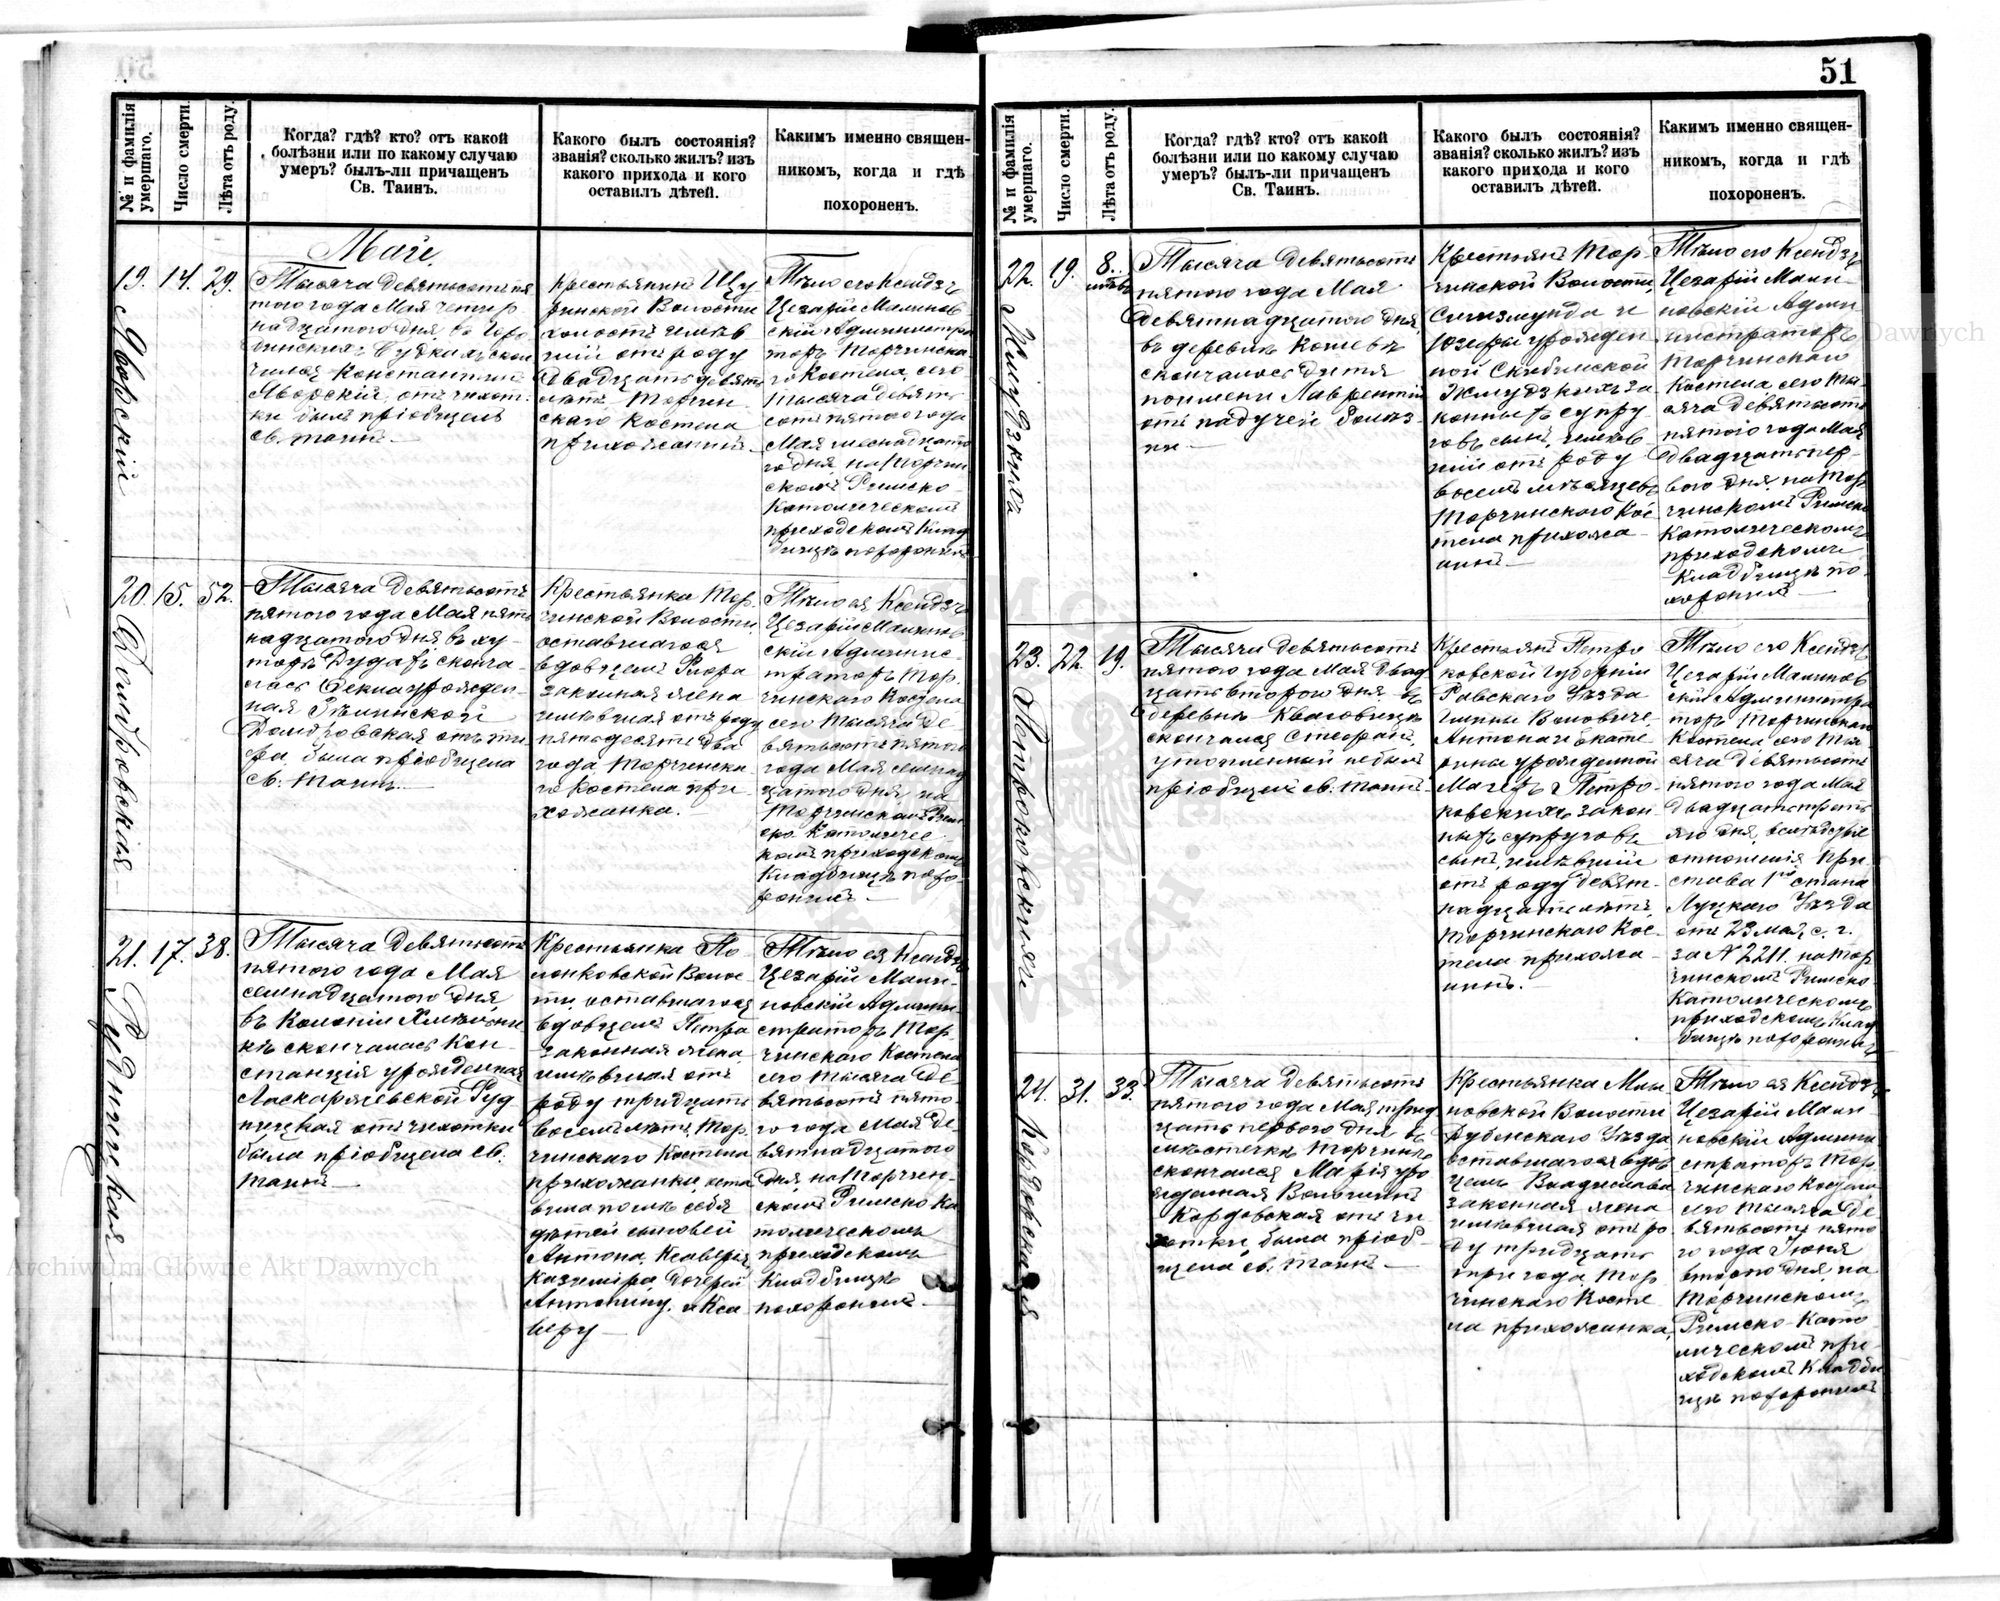 51
№ и фамилія умершаго.
Число смерти.
Лѣта отъ роду.
Когда? гдѣ? кто? отъ какой
болѣзни или по какому случаю
умеръ? былъ-ли причащенъ
Св. Таинъ.
Какого былъ состоянія?
званія? сколько жилъ? изъ
какого прихода и кого
оставилъ дѣтей.
Какимъ именно священ-
никомъ, когда и гдѣ
похороненъ.
Май.
19. Яворскій
14.
29.
Тысяча девятьсотъ пя
того года Мая четыр
надцатого дня, въ
Константинъ
Яворскій отъ чахот
ки былъ пріобщенъ
св. таинъ.
Крестьянинъ Щу
ринской Волости
холостъ имѣв
шій отъ роду
двадцать девять
лѣтъ Торчин
скаго Костела
прихожанинъ.
Тѣло его Ксендзъ
Цезарій Малинов
скій Администра
торъ Торчинска
го Костела, сего
тысяча девять
сотъ пятого года
Мая шеснадцато
го дня, на Торчин
скомъ Римско
Католическомъ
приходскомъ клад
бищѣ похоронилъ
20. Домбровская
15.
52.
Тысяча девятьсотъ
пятого года Мая пят
надцатого дня, въ ху
торѣ Дудаѣ сконча
лась Фекла урожден
ная Рѣпинской
Домбровская отъ ти
фа, была пріобщена
св. таинъ.
Крестьянка Тор
чинской Волости,
оставшагося
вдовцемъ Флора
законная жена
имѣвшая отъ роду
пятьдесятъ два
года, Торчинска
го Костела при
хожанка.
Тѣло ея Ксендзъ
Цезарій Малинов
скій Админис
траторъ Тор
чинскаго Костела
сего тысяча де
вятьсотъ пятого
года Мая семнад
цатого дня на
Торчинскомъ Рим
ско Католичес
комъ приходскомъ
кладбищѣ похо
ронилъ
21. Рудницкая
17.
38.
Тысяча девятьсотъ
пятого года Мая
семнадцатого дня,
въ Колоніи
скончалась Кон
станція урожденная
Ласкаржевской Руд
ницкая отъ чахотки
была пріобщена св.
таинъ
Крестьянка По
лонковской Волос
ти, оставшагося
вдовцемъ Петра
законная жена
имѣвшая отъ
роду тридцать
восемь лѣтъ, Тор
чинскаго Костела
прихожанка, оста
вила послѣ себя
дѣтей сыновей
Антона, Ксаверія
Казиміра, дочерей
Антонину, и Кса
веру
Тѣло ея Ксендзъ
Цезарій Мали
новскій Админи
страторъ Тор
чинскаго Костела
сего тысяча де
вятьсотъ пято
го года Мая де
вятнадцатого
дня, на Торчин
скомъ Римско Ка
толическомъ
приходскомъ
кладбищѣ
похоронилъ
№ и фамилія умершаго.
Число смерти.
Лѣта отъ роду.
Когда? гдѣ? кто? отъ какой
болѣзни или по какому случаю
умеръ? былъ-ли причащенъ
Св. Таинъ.
Какого былъ состоянія?
званія? сколько жилъ? изъ
какого прихода и кого
оставилъ дѣтей.
Какимъ именно священ-
никомъ, когда и гдѣ
похороненъ.
22. Жмудзкихъ
19.
8.
Тысяча девятьсотъ
пятого года Мая
девятнадцатого дня,
въ деревнѣ
скончалось дитя
по имени Лаврентій
отъ падучей болѣз
ни
Крестьянъ Тор
чинской Волости,
Сигизмунда и
Юзефы урожден
ной Скибинской
Жмудзкихъ за
конныхъ супру
говъ сынъ, имѣв
шій отъ роду
восемь мѣсяцевъ
Торчинского Кос
тела прихожа
нинъ
Тѣло его Ксендзъ
Цезарій Мали
новскій Адми
нистраторъ
Торчинскаго
Костела сего ты
сяча девятьсотъ
пятого года Мая
двадцать пер
вого дня, на Тор
чинскомъ Римско
Католическомъ
приходскомъ
кладбищѣ по
хоронилъ
23. Петроковскихъ
22.
19.
Тысяча девятьсотъ
пятого года Мая двад
цать второго дня, въ
деревнѣ
скончался Стефанъ,
утопленный не былъ
пріобщенъ св. таинъ
Крестьянъ Петро
ковской Губерніи
Равскаго Уѣзда
Гмины
Антона и Екате
рины урожденной
Петро
ковскихъ закон
ныхъ супруговъ
сынъ, имѣвшій
отъ роду девят
надцать лѣтъ,
Торчинскаго Кос
тела прихожа
нинъ.
Тѣло его Ксендзъ
Цезарій Малинов
скій Администра
торъ Торчинскаго
Костела сего ты
сяча девятьсотъ
пятого года Мая
двадцать треть
яго дня, вслѣдствіе
отношенія При
става 1го стана
Луцкаго Уѣзда
отъ 23 мая с. г.
за № 2211. на Тор
чинскомъ Римско
Католическомъ
приходскомъ клад
бищѣ похоронилъ
24. Кордовская
31.
33.
Тысяча девятьсотъ
пятого года Мая трид
цать первого дня въ
мѣстечкѣ Торчинѣ
скончалася Марія уро
жденная
Кордовская отъ ча
хотки, была пріоб
щена св. таинъ
Крестьянка Млы
новской Волости
Дубенскаго Уѣзда
оставшагося вдов
цемъ Владислава
законная жена
имѣвшая отъ ро
ду тридцать
три года, Тор
чинскаго Косте
ла прихожанка,
Тѣло ея Ксендзъ
Цезарій Мали
новскій Админи
страторъ Тор
чинскаго Костела
сего тысяча де
вятьсотъ пято
го года Іюня
второго дня, на
Торчинскомъ
Римско-Като
лическомъ при
ходскомъ кладби
щѣ похоронилъ
Archiwum Główne Akt Dawnych